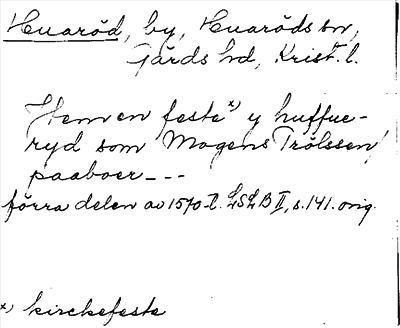 Huaröd, by, Huaröds sn,
Gärds hd, Krist. l.
Hemen feste x) y huffue-
ryd som Mogens Trólssen
paaboer---
förra delen av 1570-t. LSLB II, s. 141. orig.
x) kirckefeste